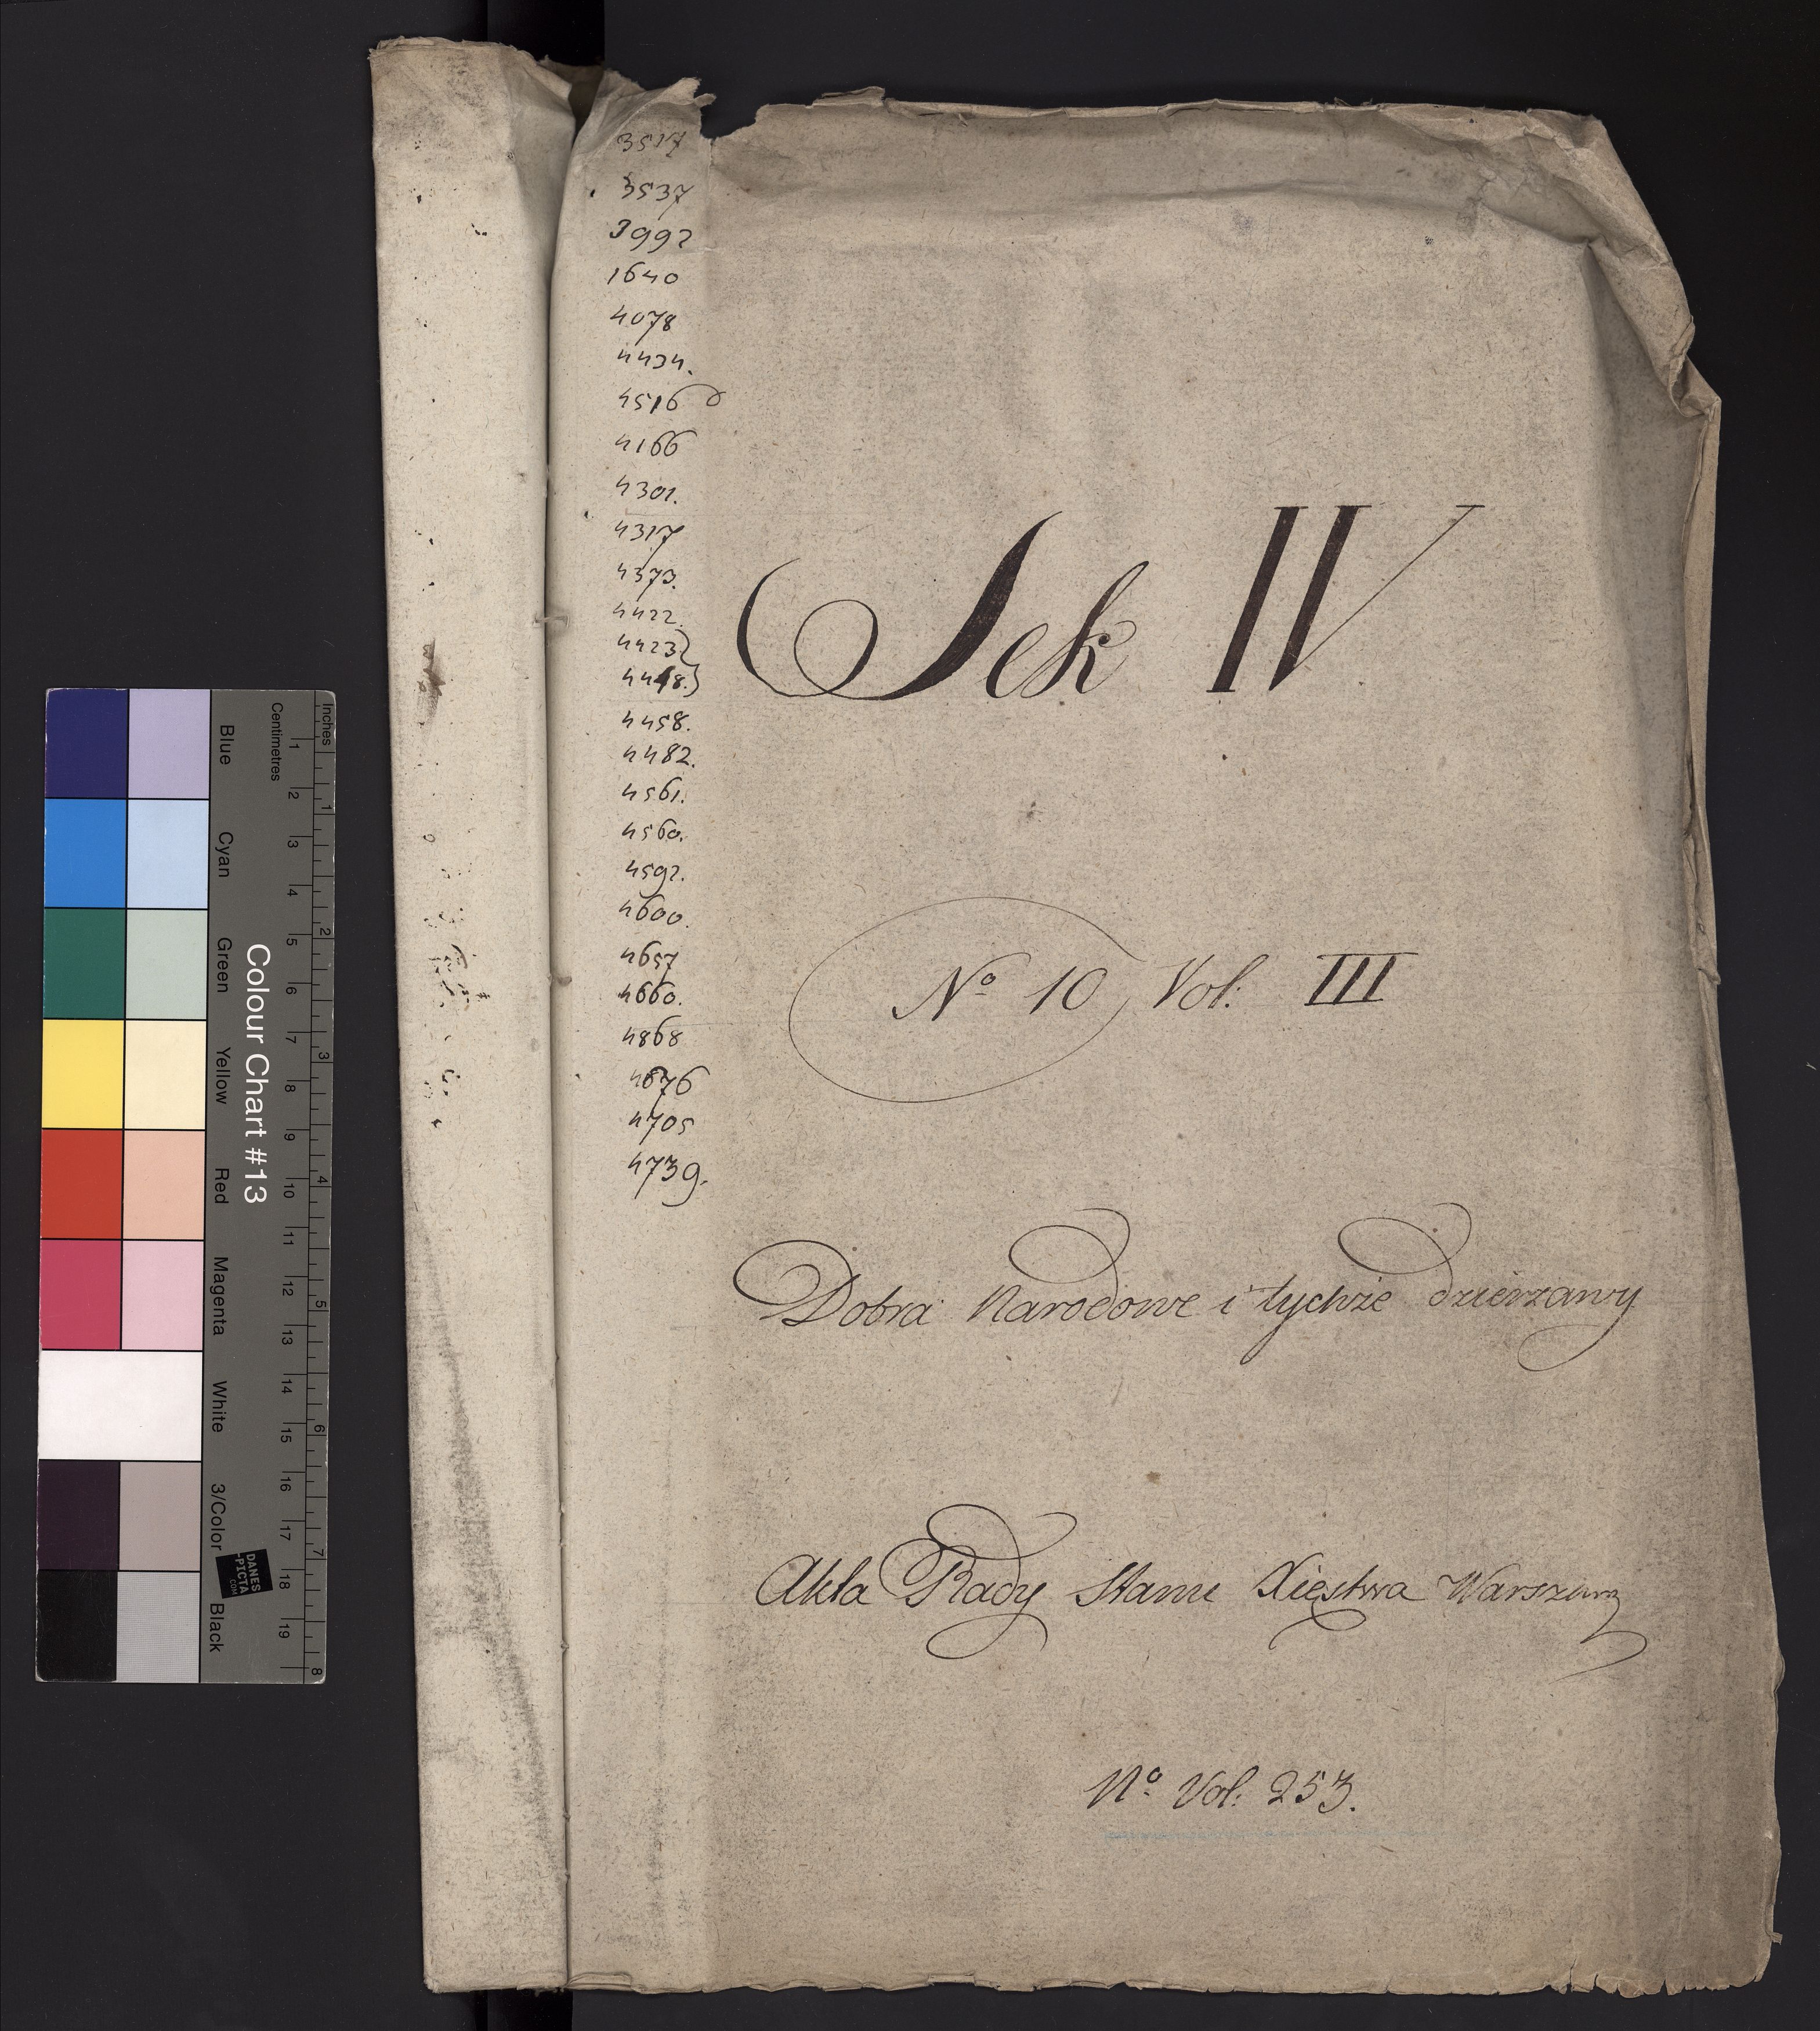 3517
3537
3992
1640
4078
4434.
4516
4166
4301.
4317
4373.
4422.
4423
4458.
4482.
4561.
4560.
4592.
4600.
4657
4660.
4868
4676
4705
4739.
Sek IV
No 10 Vol: III
Dobra Narodowe i tychże dzierżawy
Akta Rady Stanu Xięstwa Warszaw
No Vol: 253.
Inches
Centimetres
1 2 3 4 5 6 7 8
1 2 3 4 5 6 7 8 9 10 11 12 13 14 15 16 17 18 19
Colour Chart #13
Blue
Cyan
Green
Yellow
Red
Magenta
White
3/Color
Black
DANES
-PICTA
.COM